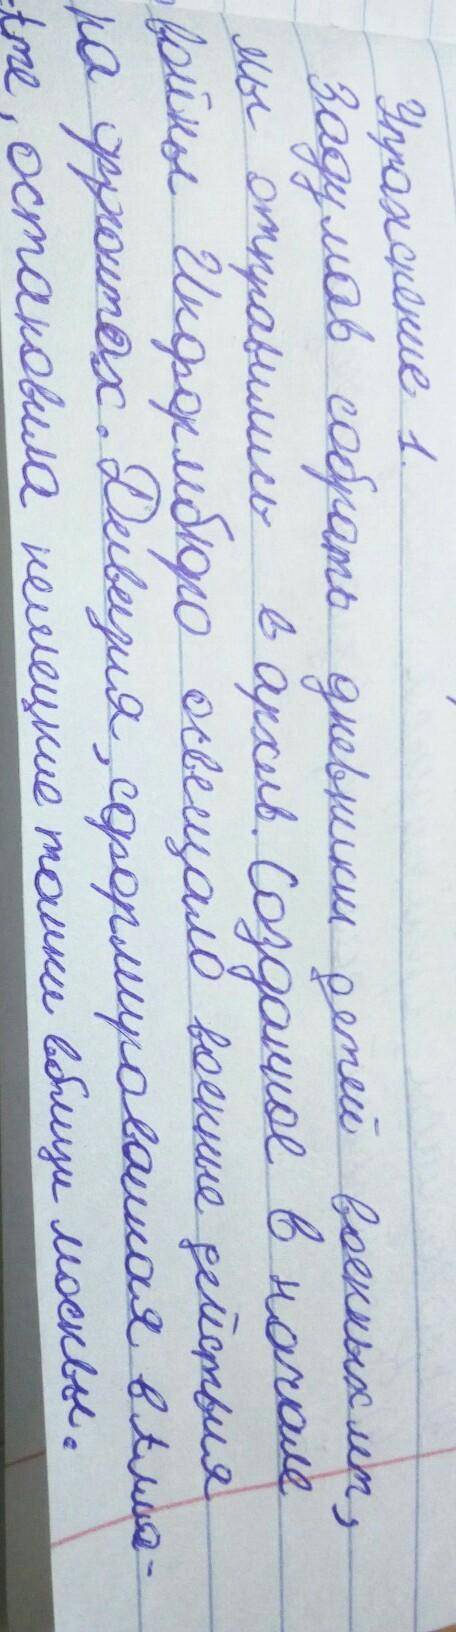 Упражнение 1.
Задумав собрать дневники детей военных лет,
мы отправились в архив. Созданное в начале
войны Информбюро освещало военные действия
на фронтах. Дивизия, сформированная в Алма-
Ате, остановила немецкие танки вблизи москвы.